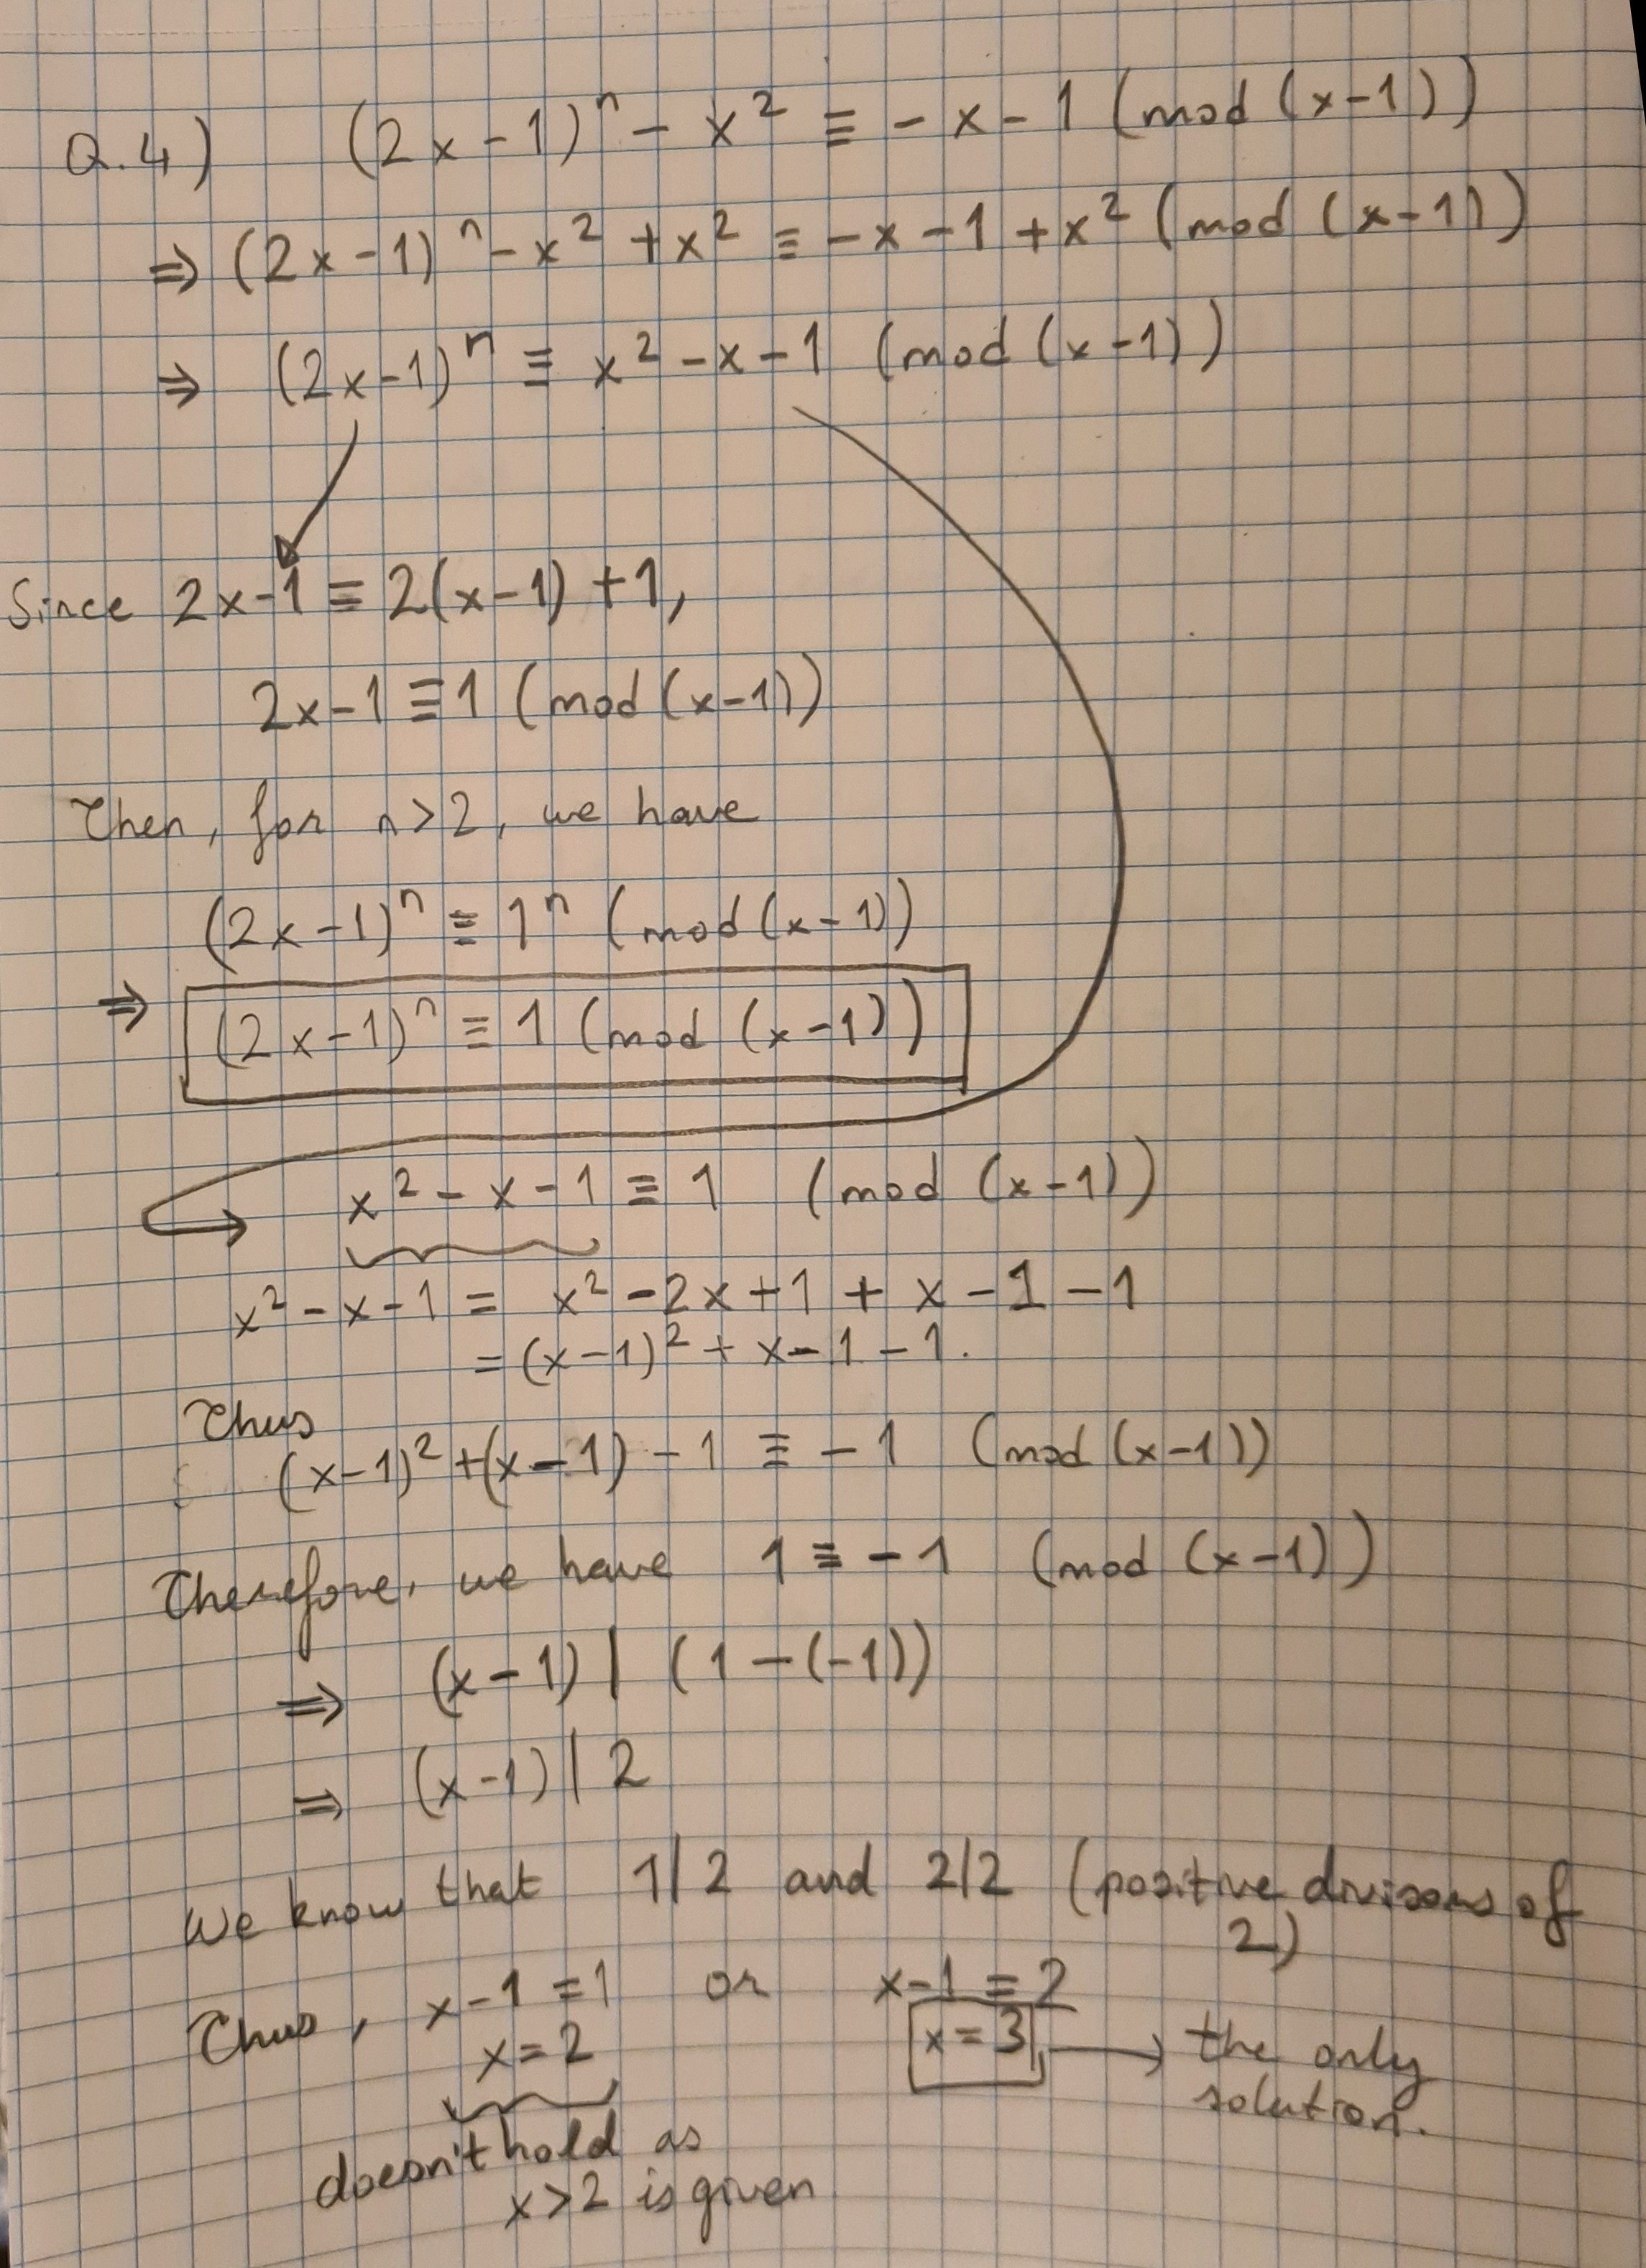 Q.4) (2x-1)ⁿ - x² ≡ -x-1 (mod (x-1))
⇒ (2x-1)ⁿ - x² + x² ≡ -x-1+x² (mod (x-1))
⇒ (2x-1)ⁿ ≡ x²-x-1 (mod (x-1))
Since 2x-1 ≡ 2(x-1)+1,
2x-1 ≡ 1 (mod (x-1))
Then, for n>2, we have
(2x-1)ⁿ ≡ 1ⁿ (mod (x-1))
⇒ (2x-1)ⁿ ≡ 1 (mod (x-1))
x²-x-1 ≡ 1 (mod (x-1))
x²-x-1 = x²-2x+1+x-1-1
= (x-1)²+x-1-1.
Thus
(x-1)²+(x-1)-1 ≡ -1 (mod (x-1))
Therefore, we have 1 ≡ -1 (mod (x-1))
⇒ (x-1) | (1-(-1))
⇒ (x-1) | 2
We know that 1|2 and 2|2 (positive divisors of
2)
Thus, x-1=1 or x-1=2
x=2 x=3 → the only
solution.
doesn't hold as
x>2 is given